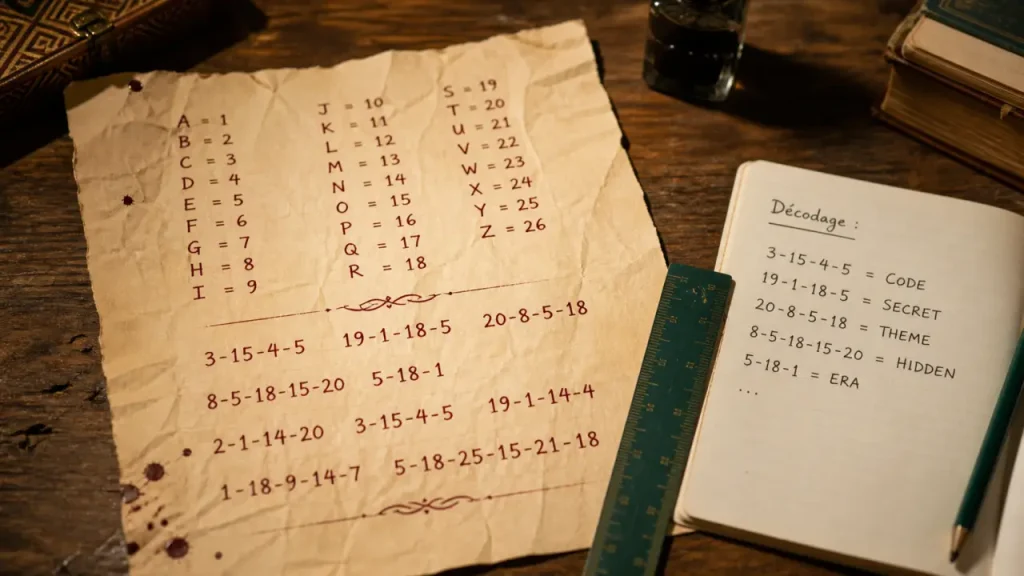 A = 1
B = 2
C = 3
D = 4
E = 5
F = 6
G = 7
H = 8
I = 9
J = 10
K = 11
L = 12
M = 13
N = 14
O = 15
P = 16
Q = 17
R = 18
S = 19
T = 20
U = 21
V = 22
W = 23
X = 24
Y = 25
Z = 26
3-15-4-5 19-1-18-5 20-8-5-18
8-5-18-15-20 5-18-1
2-1-14-20 3-15-4-5 19-1-14-4
1-18-9-14-7 5-18-25-15-21-18
Décodage :
3-15-4-5 = CODE
19-1-18-5 = SECRET
20-8-5-18 = THEME
8-5-18-15-20 = HIDDEN
5-18-1 = ERA
...